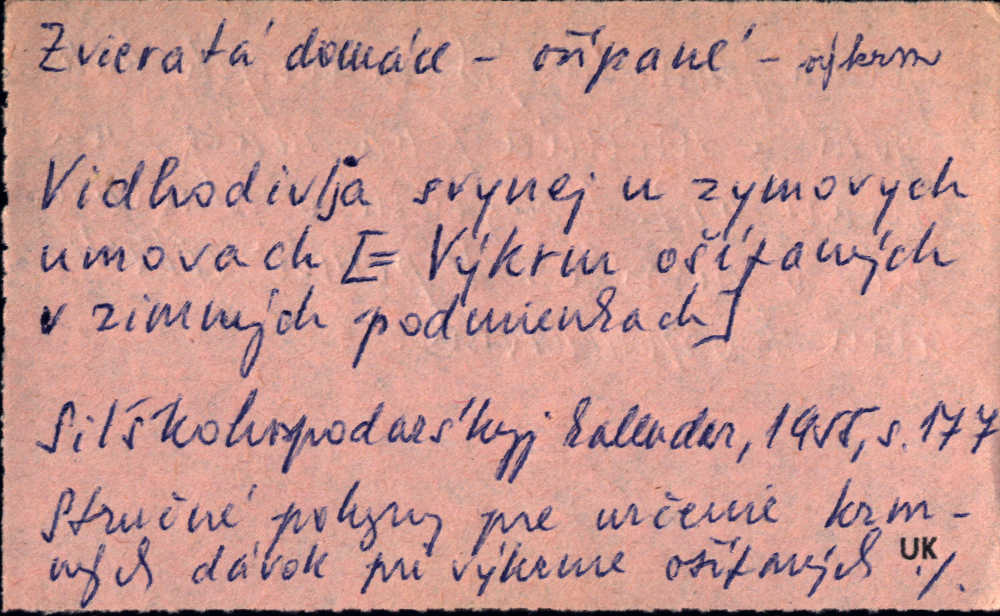 Zvieratá domáce - ošípané - výkrm
Vidhodivlja svynej u zymovych
umovach [= Výkrm ošípaných
v zimných podmienkach]
Silśkohospodarśkyj kalendar, 1955, s. 177
Stručné pokyny pre určenie krm-
ných dávok pri výkrme ošípaných ./.
UK